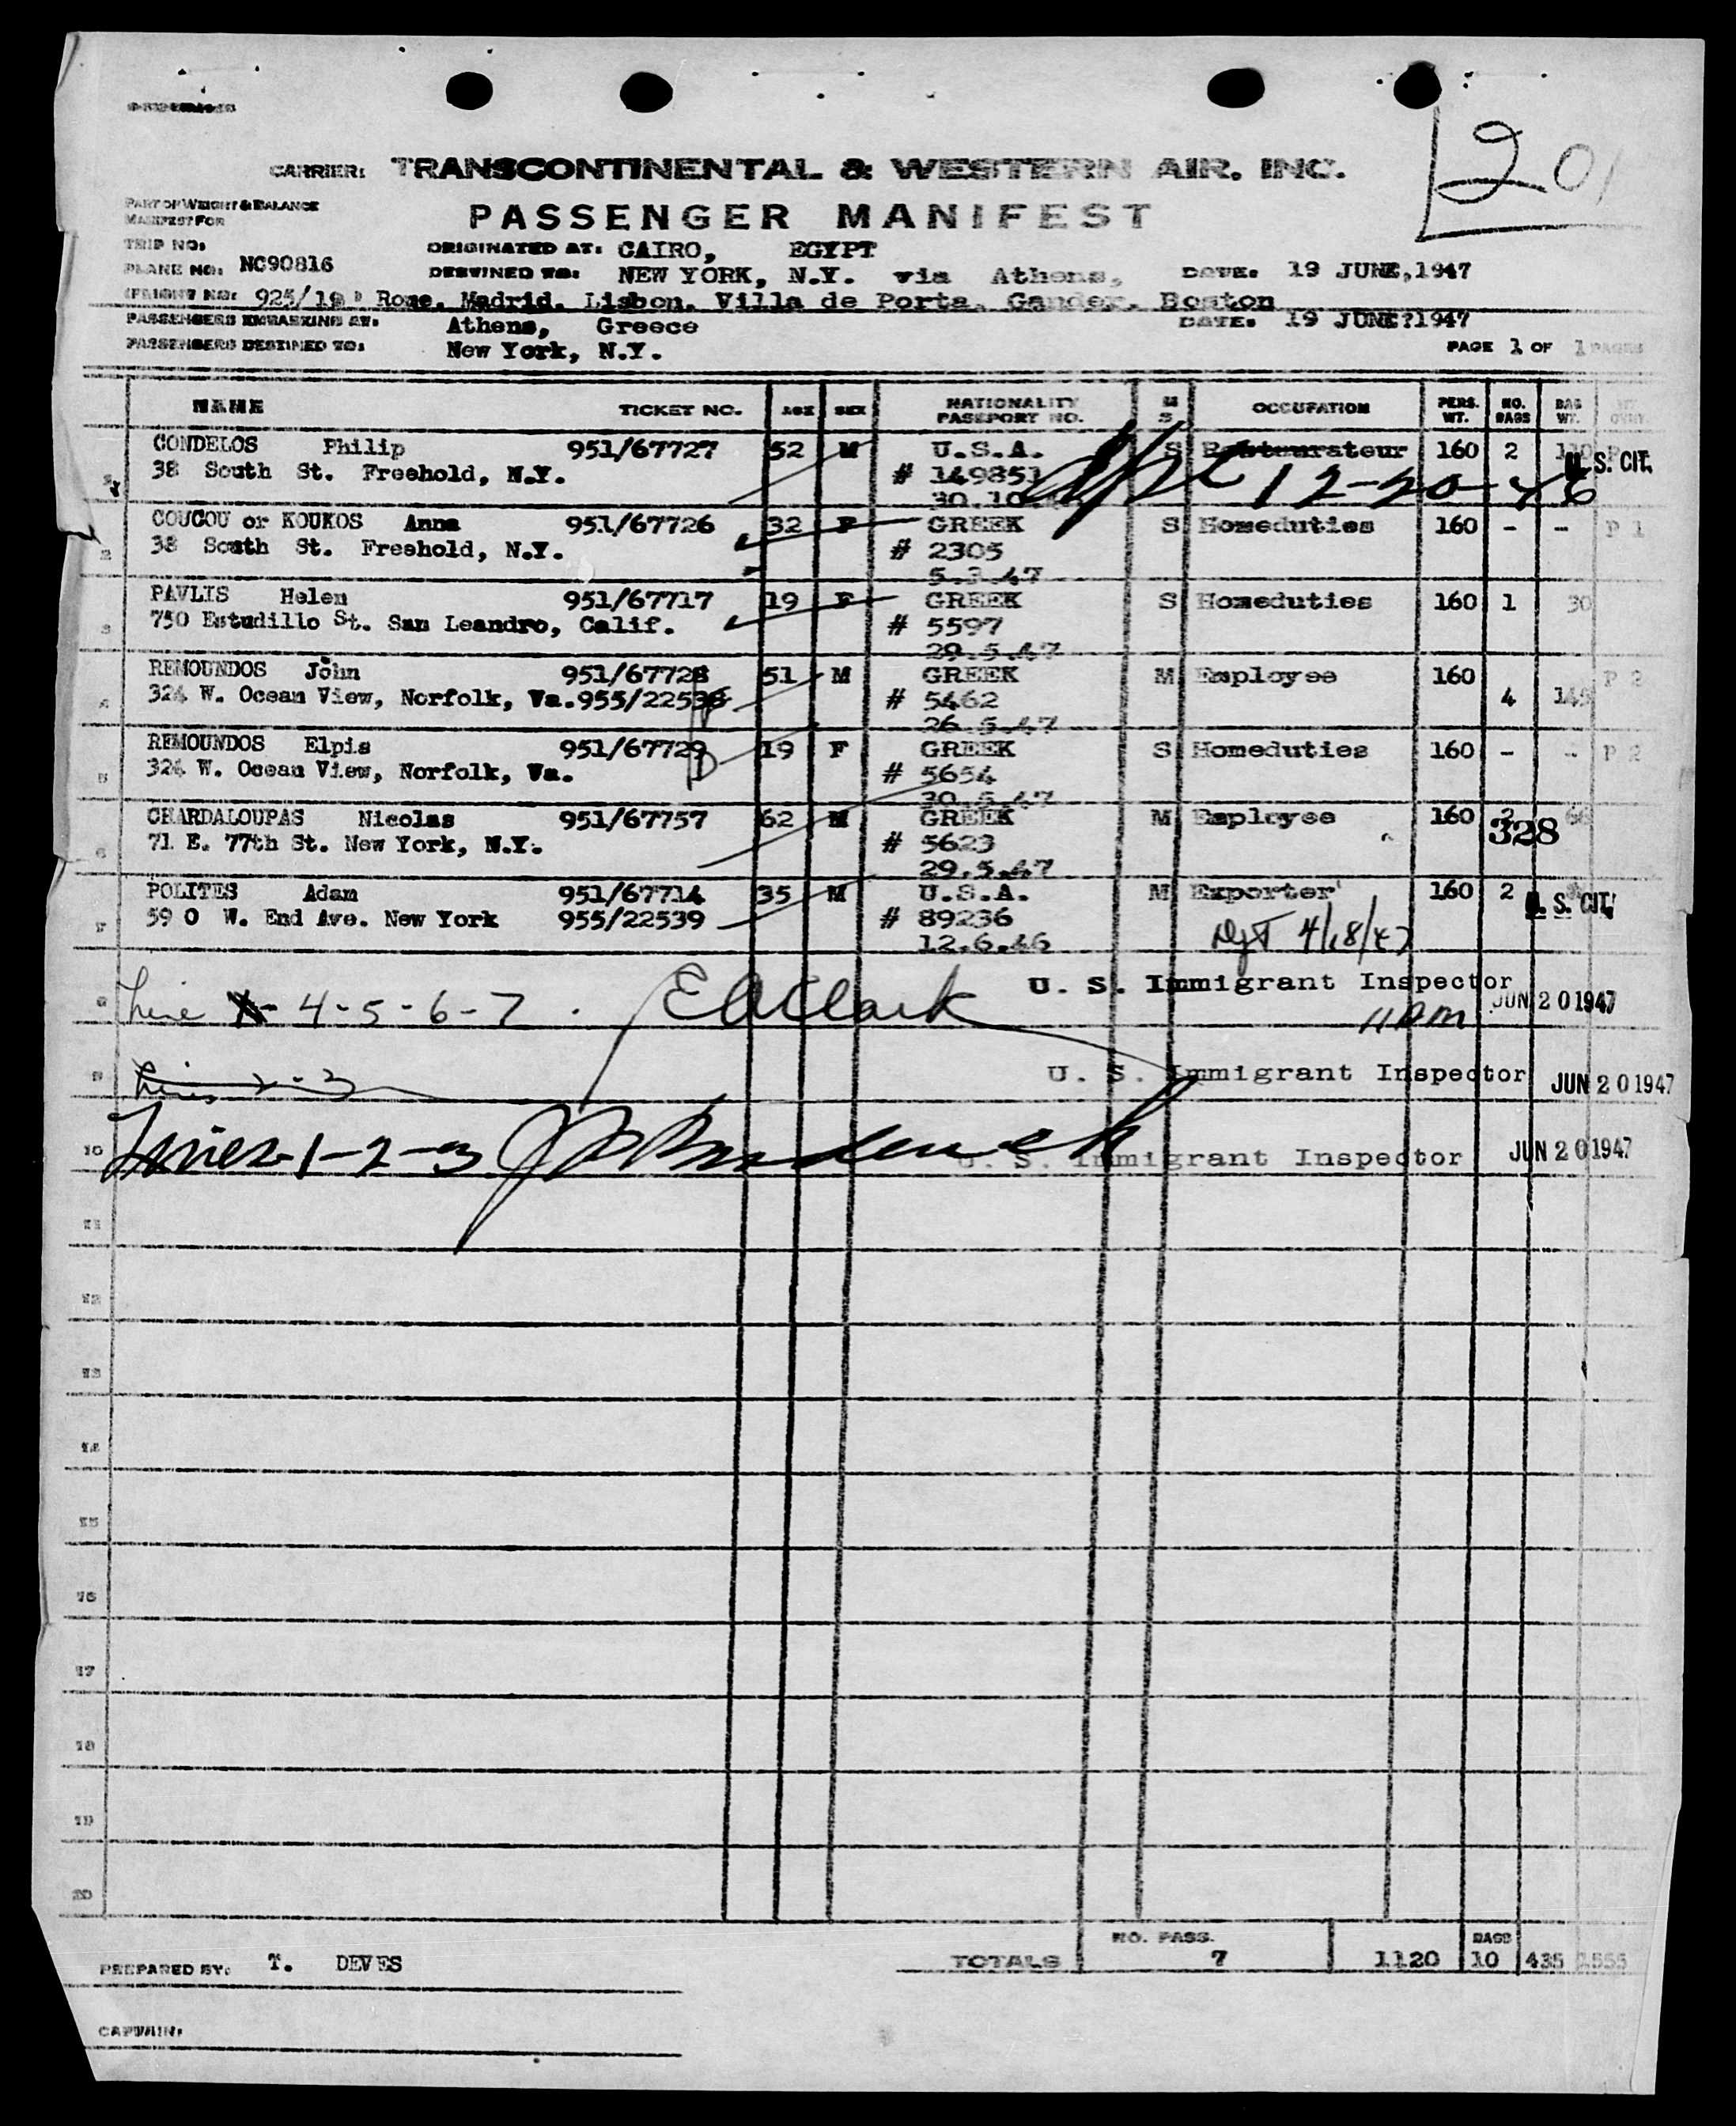 201
CARRIER: TRANSCONTINENTAL & WESTERN AIR. INC.
PART OF WEIGHT & BALANCE
MANIFEST FOR
PASSENGER MANIFEST
TRIP NO:
ORIGINATED AT: CAIRO, EGYPT
PLANE NO: NC90816
DESTINED TO: NEW YORK, N.Y. via Athens, DATE: 19 JUNE, 1947
925/19 Rome, Madrid, Lisbon, Villa de Porta, Gander, Boston
PASSENGERS EMBARKING AT: Athens, Greece DATE: 19 JUNE?1947
PASSENGERS DESTINED TO: New York, N.Y. PAGE 1 OF 1 PAGES
NAME TICKET NO. AGE SEX NATIONALITY PASSPORT NO. M S OCCUPATION PERS. WT. NO. BAGS BAG WT.
CONDELOS Philip 951/67727 52 M U.S.A. S Restaurateur 160 2 110
38 South St. Freehold, N.Y. # 149851 U.S. CIT.
30.10 12-20-46
2 COUCOU or KOUKOS Anna 951/67726 32 F GREEK S Homeduties 160 - - P 1
38 South St. Freehold, N.Y. # 2305
5.3.47
3 PAVLIS Helen 951/67717 19 F GREEK S Homeduties 160 1 30
750 Estudillo St. San Leandro, Calif. # 5597
29.5.47
4 REMOUNDOS John 951/67728 51 M GREEK M Employee 160 4 145 P 2
324 W. Ocean View, Norfolk, Va. 955/22538 # 5462
26.5.47
5 REMOUNDOS Elpis 951/67729 19 F GREEK S Homeduties 160 - - P 2
324 W. Ocean View, Norfolk, Va. # 5654
30.5.47
6 CHARDALOUPAS Nicolas 951/67757 62 M GREEK M Employee 160 2 66
71 E. 77th St. New York, N.Y. # 5623 328
29.5.47
7 POLITES Adam 951/67714 35 M U.S.A. M Exporter 160 2
59 0 W. End Ave. New York 955/22539 # 89236 U.S. CIT.
12.6.46 4/18/47
8 Line 4-5-6-7. E A Clark U. S. Immigrant Inspector JUN 20 1947
11 pm
9 Lines 2-3 U. S. Immigrant Inspector JUN 20 1947
10 Lines-1-2-3 U. S. Immigrant Inspector JUN 20 1947
11
12
13
14
15
16
17
18
19
20
PREPARED BY: T. DEVES TOTALS NO. PASS. 7 1120 BAGS 10 435 1555
CAPTAIN: